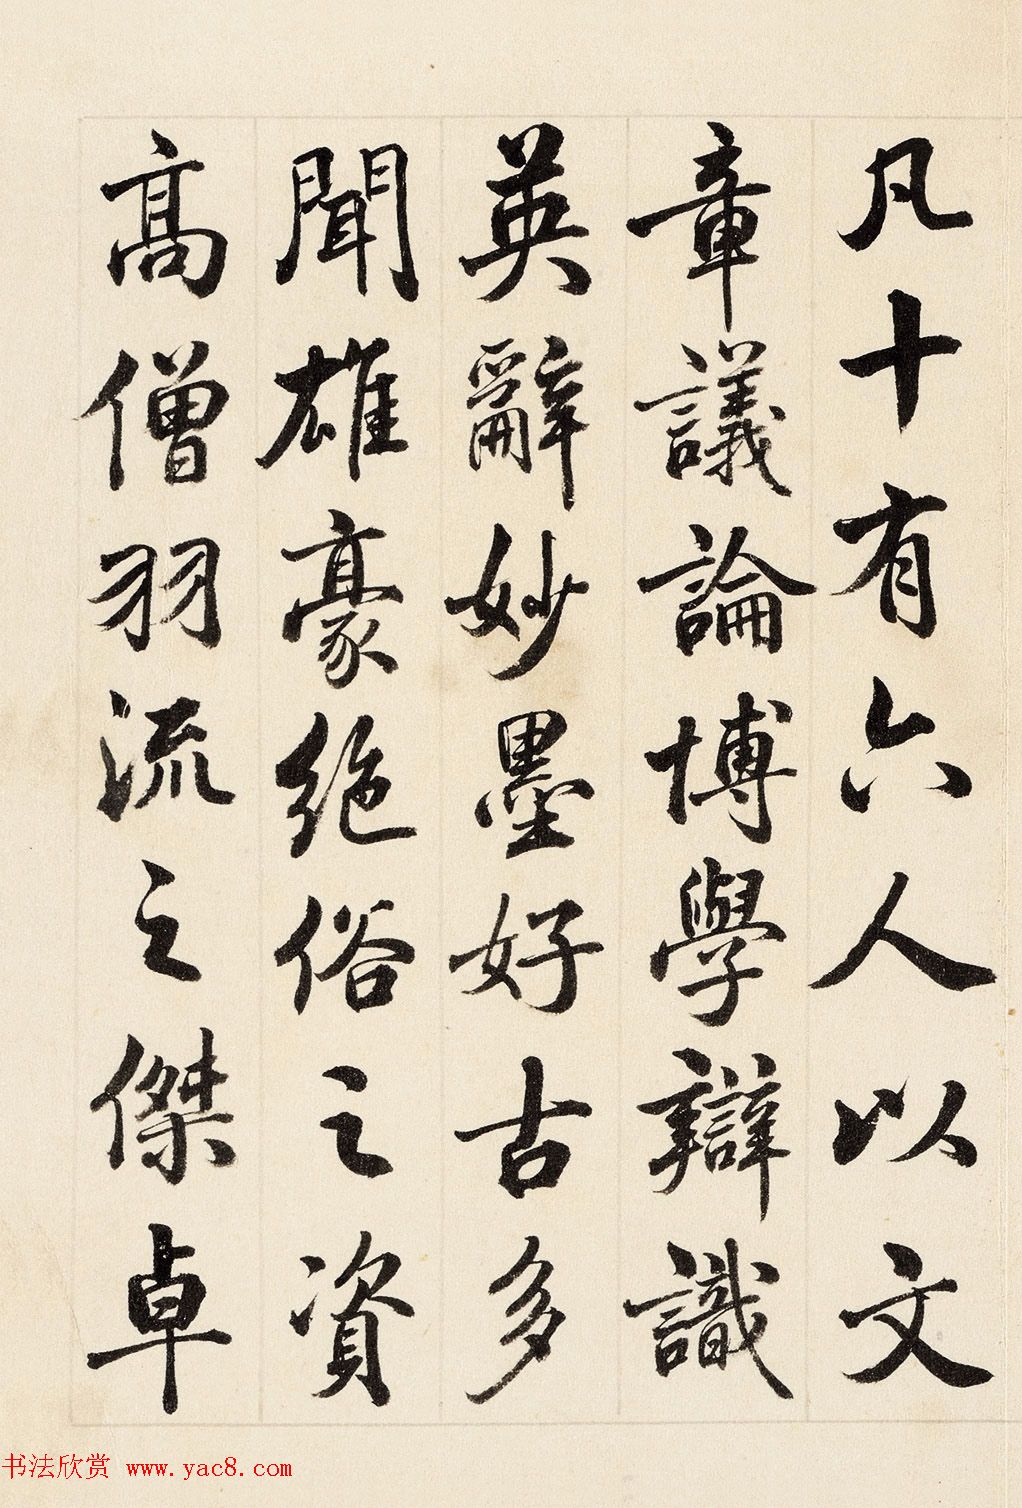 凡十有六人以文
章議論博學辯識
英辭妙墨好古多
聞雄豪絶俗之資
髙僧羽流之傑卓
书法欣赏 www.yac8.com